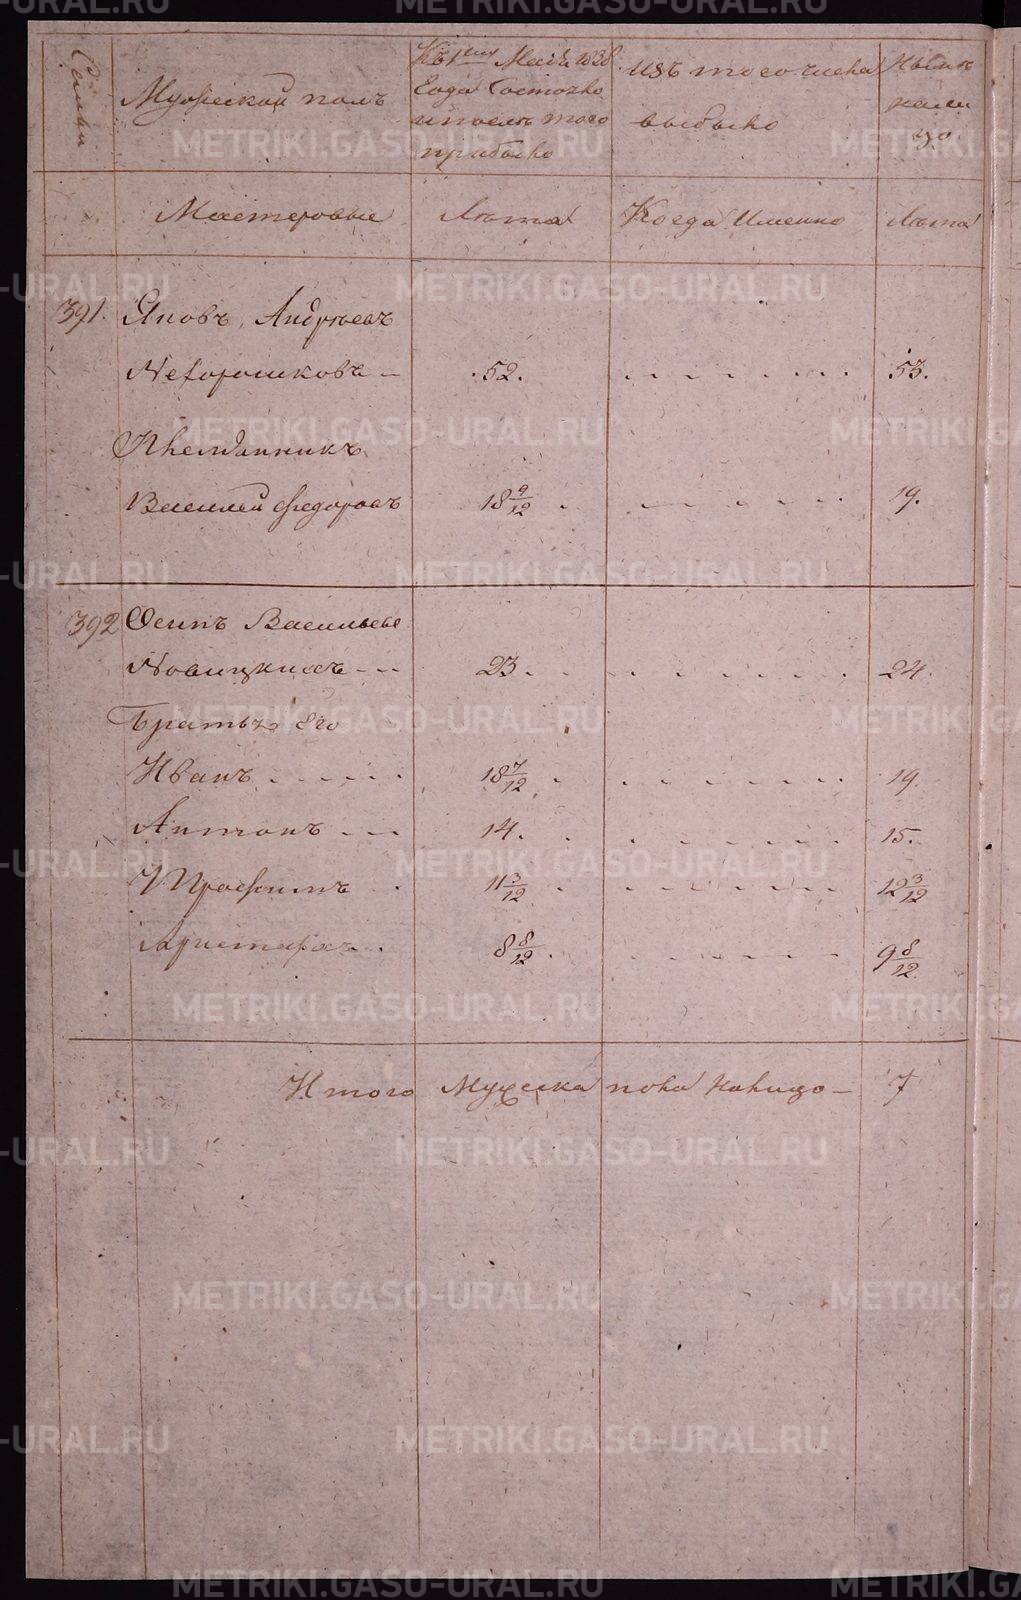 Семьи
Мужеской полъ
Къ 1му Маия 1838
Года Состояло
и послѣ того
прибыло
Изъ того числа
выбыло
Нынѣ
нали
цо
Мастеровые
Лѣта
Когда Именно
Лѣта
391. Яковъ Андрѣевъ
Нехорошковъ 52. 53.
Племянникъ
Василей Федоровъ 18 9/12 19.
392 Осипъ Васильевъ
Новицкихъ 23. 24.
Братья Его
Иванъ 18 7/12 19.
Антонъ 14. 15.
Трофимъ 11 3/12 12 3/12
Аристархъ 8 8/12 9 8/12
Итого Мужеска пола налицо 7
METRIKI.GASO-URAL.RU